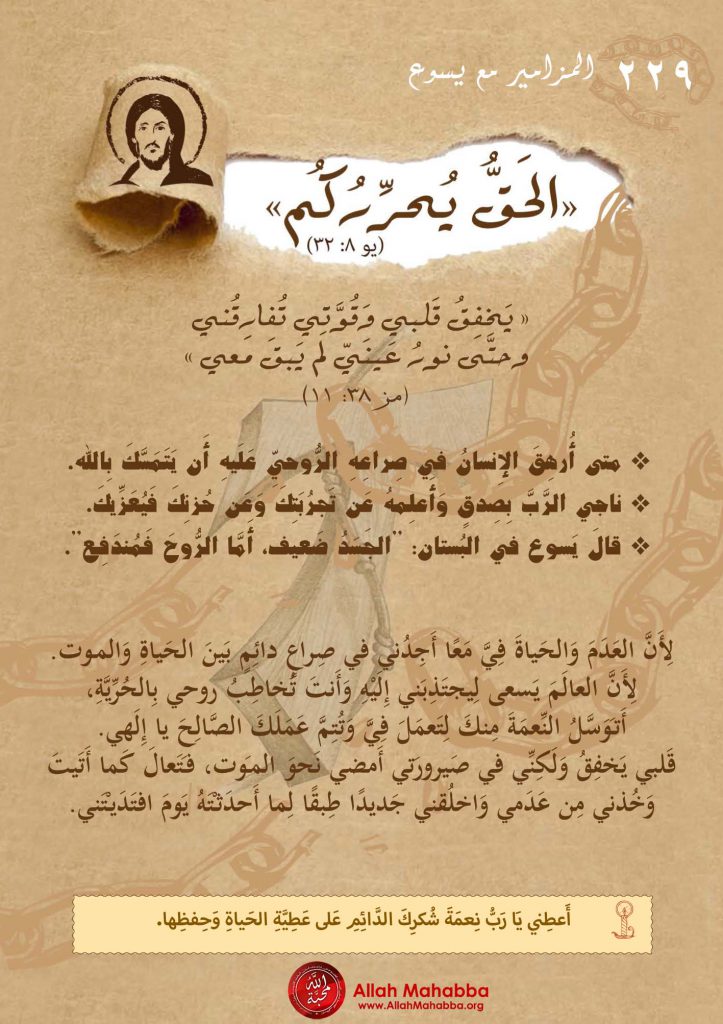 ٢٢٩ المزامير مع يسوع
«الحَقُّ يُحرِّرُكُم»
(يو ٨: ٣٢)
« يَخفِقُ قَلبي وَقُوَّتِي تُفارِقُني
وحتَّى نورُ عَينَيّ لم يَبقَ معي »
(مز ٣٨: ١١)
❖ متى أُرهِقَ الإنسانُ في صِراعه الرُّوحيّ عَلَيهِ أَن يَتَمَسَّكَ بِالله.
❖ ناجي الرَّبَّ بِصِدقٍ وَأَعلِمهُ عَن تَجرُبَتِكَ وَعَن حُزنِكَ فَيُعَزِّيكَ.
❖ قالَ يَسوع في البُستان: "الجَسَدُ ضَعيف، أَمَّا الرُّوحَ فَمُندَفِع".
لِأَنَّ العَدَمَ وَالحَياةَ فِيَّ مَعًا أَجِدُني في صِراعٍ دائِمٍ بَينَ الحَياةِ وَالموت.
لِأَنَّ العالَمَ يَسعى لِيجتَذِبَني إِلَيْهِ وَأَنتَ تُخاطِبُ روحي بِالحُرِّيَّةِ،
أَتوَسَّلُ النِّعمَةَ مِنكَ لِتَعمَلَ فِيَّ وَتُتِمَّ عَمَلَكَ الصَّالِحَ يا إِلَهي.
قَلبي يَخفِقُ وَلَكِنِّي في صَيرورَتي أَمضي نَحوَ المَوت، فَتَعالَ كَما أَتَيتَ
وَخُذني مِن عَدَمي وَاخلُقني جَديدًا طِبقًا لِما أَحدَثْتَهُ يَومَ افتَدَيْتَني.
أَعطِني يَا رَبُّ نِعمَةَ شُكرِكَ الدَّائِمِ عَلى عَطِيَّةِ الحَياةِ وَحِفظِها.
الله محبة
Allah Mahabba
www.AllahMahabba.org